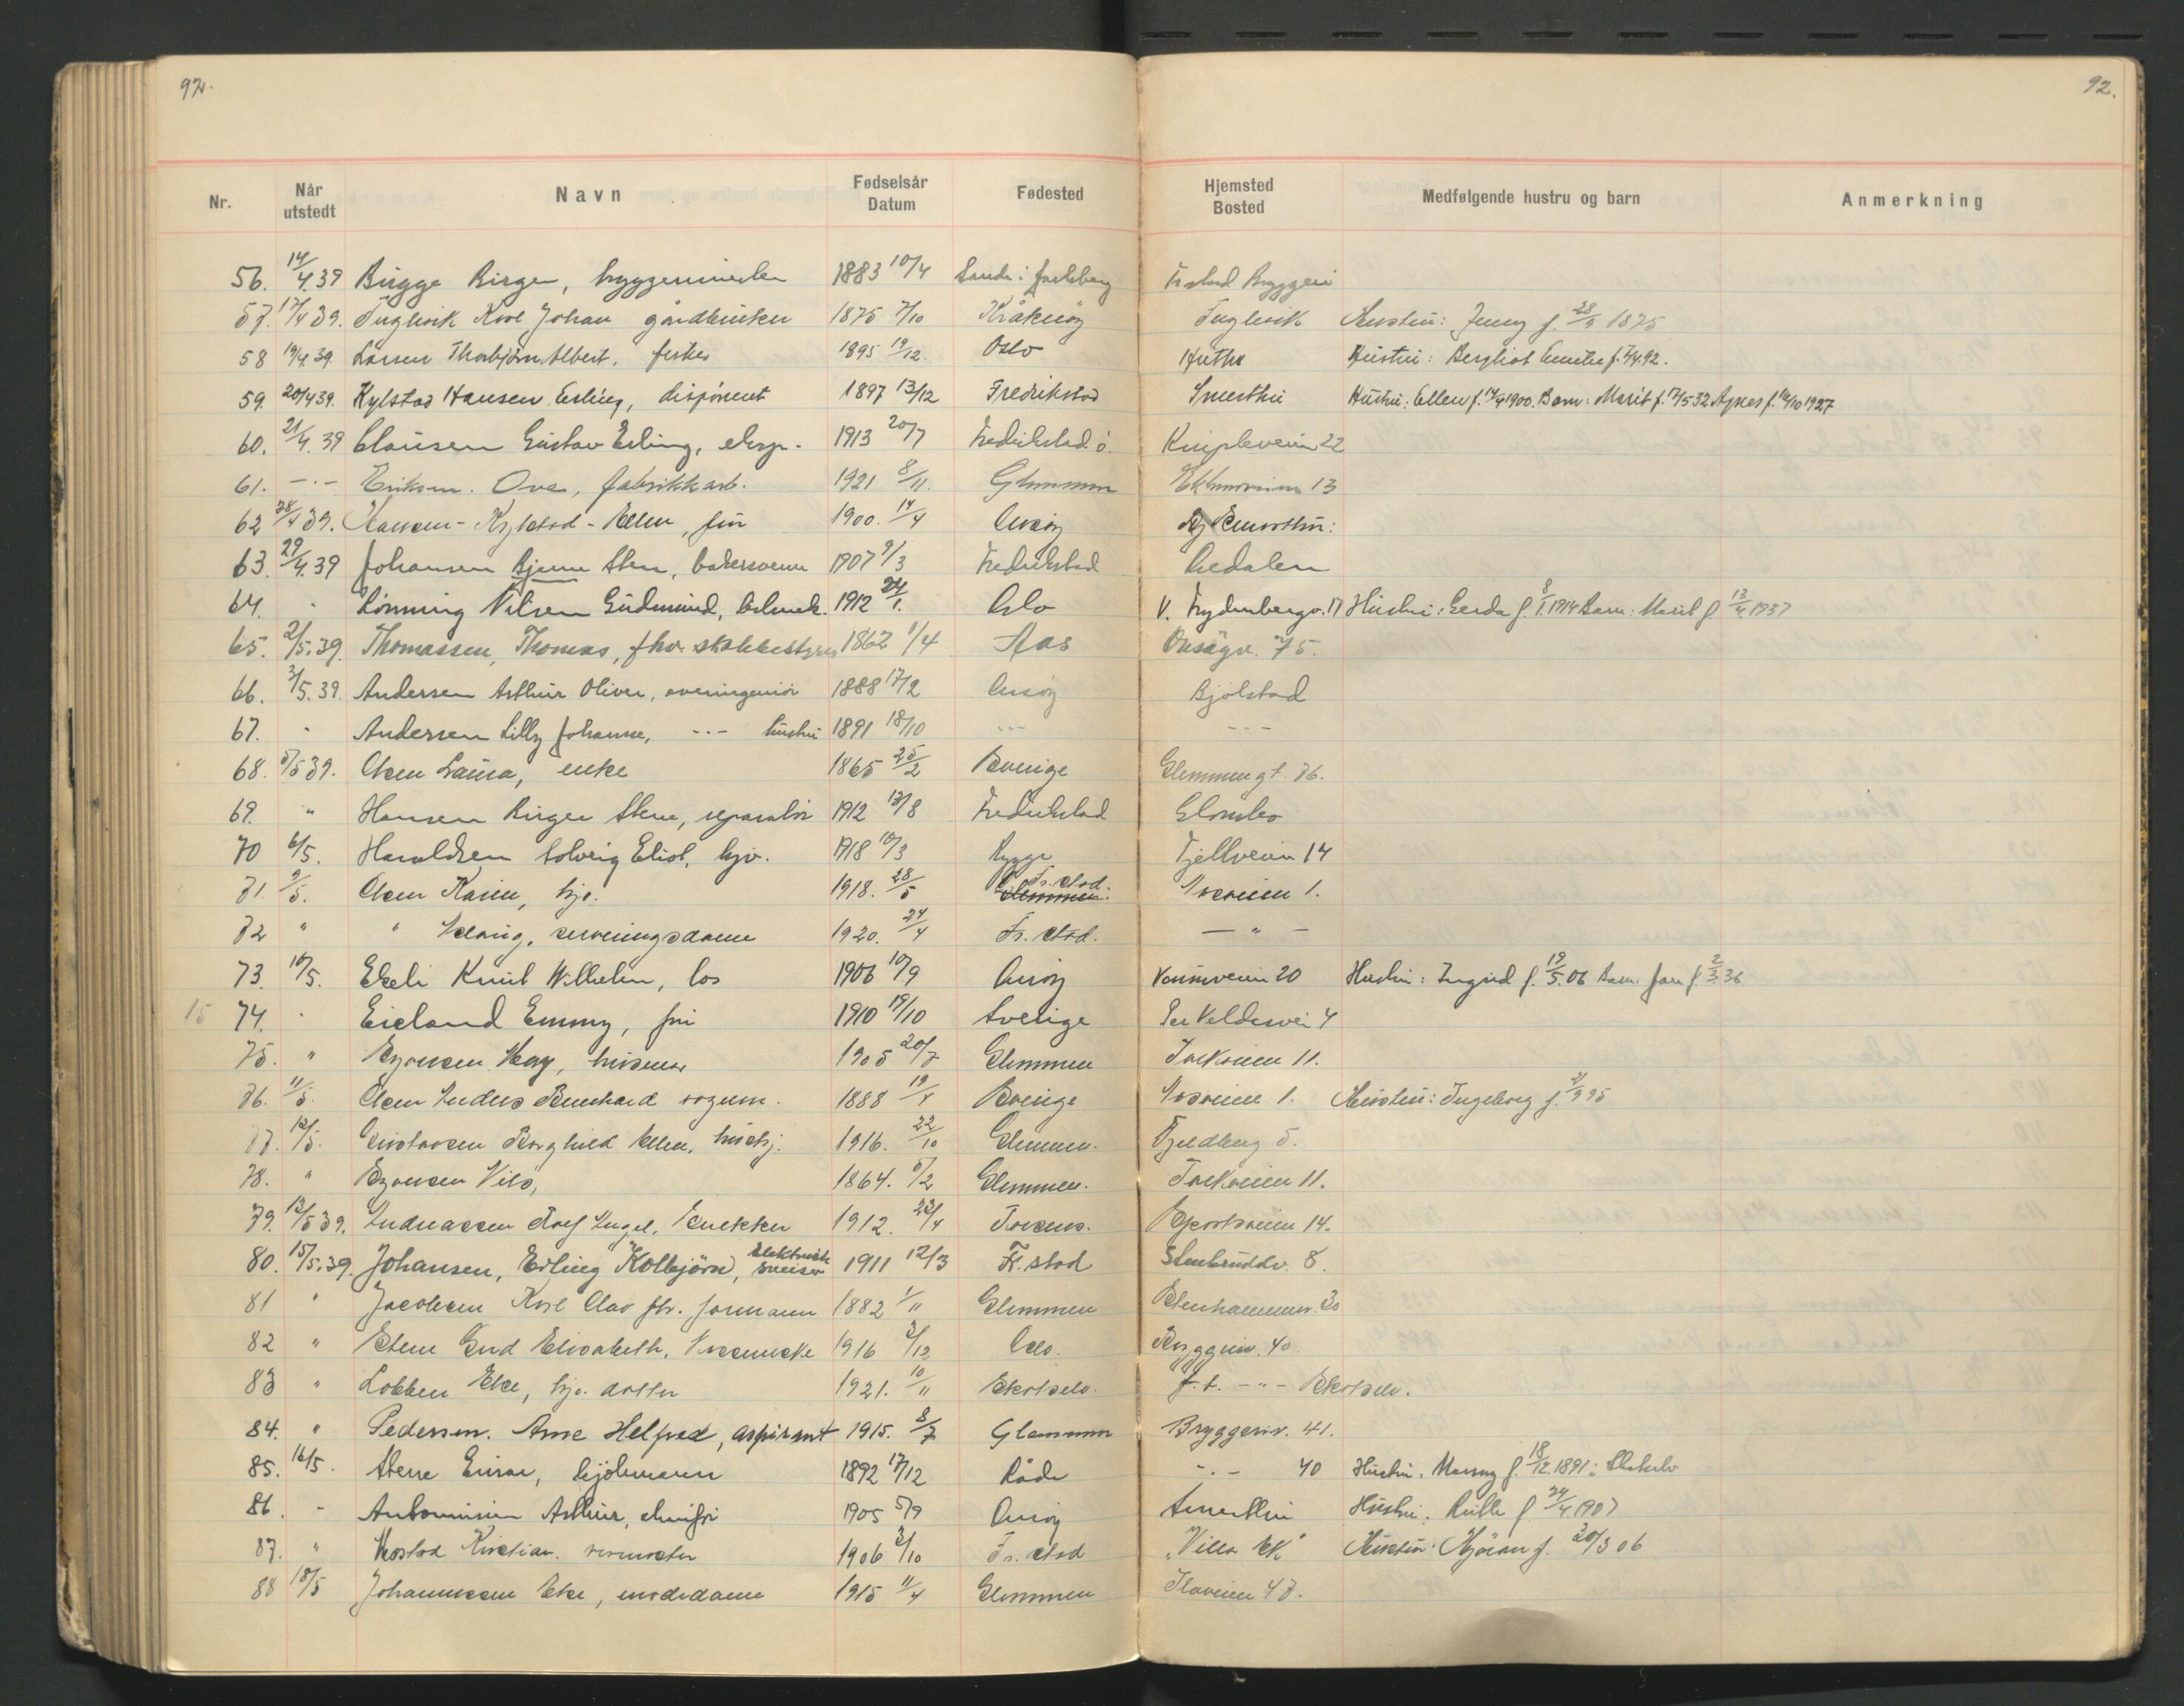 92.
92.
Nr. Når utstedt Navn Fødselsår Datum Fødested Hjemsted Bosted Medfølgende hustru og barn Anmerkning
56. 14/4.39 Bigge Birger, bryggerimester 1883 10/4 Sande i Jarlsberg Fr.stad Bryggeri
57. 17/4 39. Fuglevik Karl Johan gårdbruker 1875 7/10 Kråkerøy Fuglevik Hustru: Jenny f. 28/9 1875
58 19/4.39. Larsen Thorbjørn Albert, fisker 1895 19/12. Oslo Hustru: Bergliot Emilie f. 7/4.92.
59. 20/4 39. Kylstad Hansen Erling, disponent 1897 13/12 Fredrikstad Smerthu Hustru: Ellen f. 14/4 1900. Barn: Marit f. 17/5 32 Agnes f. 16/10 1927
60. 21/4.39 Clausen Gustav Erling, eksp. 1913 20/7 Fredrikstad ø. Knipleveien 22
61. -"- Eriksen. Ove, fabrikkarb. 1921 8/11. Glemmen 13
62 28/4 39. Hansen-Kylstad-Ellen, fru 1900. 14/4 Onsøy Smerthu:
63. 29/4.39 Johansen Bjarne Sten, bakersvenn 1907 9/3 Fredrikstad Gudalen
64. " Lønning Nilsen Gudmund, 1912 24/1. Oslo V. Frydenbergv. 17 Hustru: Gerda f. 8/1.1914 Barn: Marit f. 13/4 1937
65. 2/5.39. Thomassen, Thomas, fhv. 1862 1/4 Aas Onsøyv. 75.
66. 3/5.39. Andersen Arthur Oliver, overingeniør 1888 17/2 Onsøy Bjølstad
67. " Andersen Lilly Johanne, -"- hustru 1891 18/10 -"- -"-
68. 5/5 39. Olsen Laura, enke 1865 25/2 Sverige Glemmengt. 76.
69. " Hansen Birger Stene, reparatør 1912 13/8 Fredrikstad Glombo
70 6/5. Haraldsen Solveig Eliot, hjv. 1918 10/3 Rygge Fjellveien 14
71. 9/5. Olsen Karin, hjv. 1918. 28/5 Glemmen. Fr.stad. 1.
72 " " Aslaug, serveringsdame 1920. 24/4 Fr. stad. -"-
73. 10/5. Ekeli Knut Wilhelm, los 1906 10/9 Onsøy 20 Hustru: Ingrid f. 19/5.06 Barn: Jan f. 2/3 36
15 74. " Eieland Emmy, fru 1910 19/10 Sverige Per Veldesvei 4
75. " Syversen Hary, husmor 1905 20/7 Glemmen Torkveien 11.
76. 11/5. Olsen Anders Bernhard vognm. 1888 19/ Sverige 1. Hustru: Ingeborg f. 95
77. 12/5. Gustavsen Borghild Ellen, hushj. 1916. 22/10 Glemmen. Fjeldberg 5.
78. " Syversen Nils, 1864. 5/2 Glemmen. Torkveien 11.
79. 12/5 39. Andreassen Rolf Engel. snekker 1912. 22/4 Torsnes. Sportsveien 14.
80. 15/5.39. Johansen, Erling Kolbjørn, elektrisk sveiser 1911 12/3 Fr.stad Stenbruddv. 8.
81 " Jacobsen Karl Olav fhv. formann 1882 1/11 Glemmen Stenhammerv. 30
82 " Stene Gud Elisabeth, 1916 2/12 Oslo. Bryggeriv. 40
83 " Lobben Else, hjv. datter 1921. 10/11 Skotselv. f.t. -"- Skotselv.
84. " Pedersen. Arne Helfred, aspirant 1915. 8/7 Glemmen Bryggeriv. 41.
85. 16/5. Stene Einar, 1892 17/12 Råde -"- 40 Hustru: f. 18/12.1891 i Skotselv
86. - Antonisen Arthur, 1905 5/9 Onsøy Smerthu Hustru: Ruth f. 24/4.1907
87. " Kristian. 1906 2/10 Fr. stad "Villa Ek" Hustru: f. 20/3 06
88 18/5 Johannessen Else, motedame 1915 11/4 Glemmen 47.